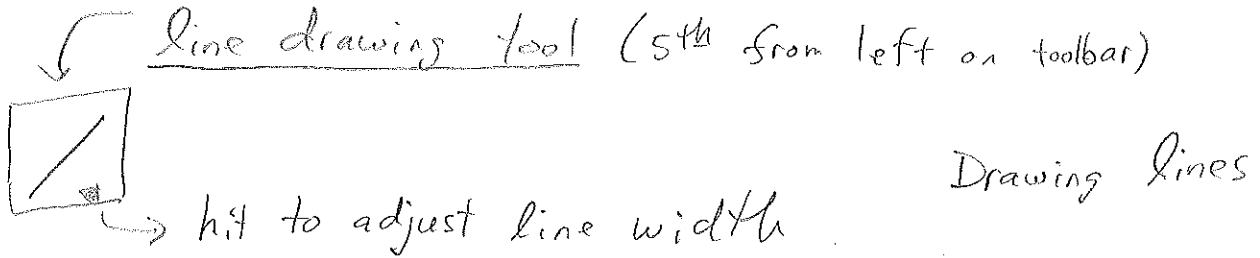 line drawing tool (5th from left on toolbar)
Drawing lines
hit to adjust line width